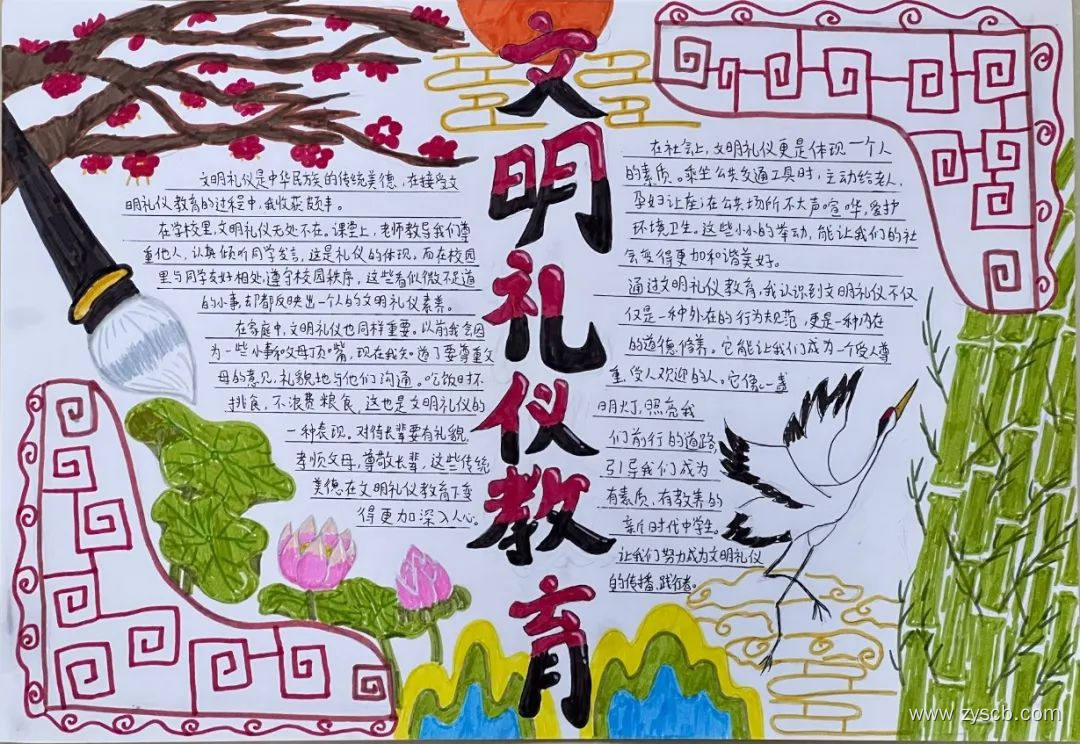 文明礼仪教育
文明礼仪是中华民族的传统美德,在接受文
明礼仪教育的过程中,我收获颇丰。
在学校里,文明礼仪无处不在。课堂上,老师教导我们尊
重他人,认真倾听同学发言,这是礼仪的体现。而在校园
里与同学友好相处,遵守校园秩序,这些看似微不足道
的小事,却都反映出一个人的文明礼仪素养。
在家庭中,文明礼仪也同样重要。以前我会因
为一些小事和父母顶嘴,现在我知道了要尊重父
母的意见,礼貌地与他们沟通。吃饭时不
挑食,不浪费粮食,这也是文明礼仪的
一种表现。对待长辈要有礼貌,
孝顺父母,尊敬长辈,这些传统
美德在文明礼仪教育下变
得更加深入人心。
在社会上,文明礼仪更是体现一个人
的素质。乘坐公共交通工具时,主动给老人、
孕妇让座;在公共场所不大声喧哗,爱护
环境卫生。这些小小的举动,能让我们的社
会变得更加和谐美好。
通过文明礼仪教育,我认识到文明礼仪不仅
仅是一种外在的行为规范,更是一种内在
的道德修养。它能让我们成为一个受人尊
重,受人欢迎的人。它像一盏
明灯,照亮我
们前行的道路,
引导我们成为
有素质、有教养的
新时代中学生。
让我们努力成为文明礼仪
的传播、践行者。
www.zyscb.com